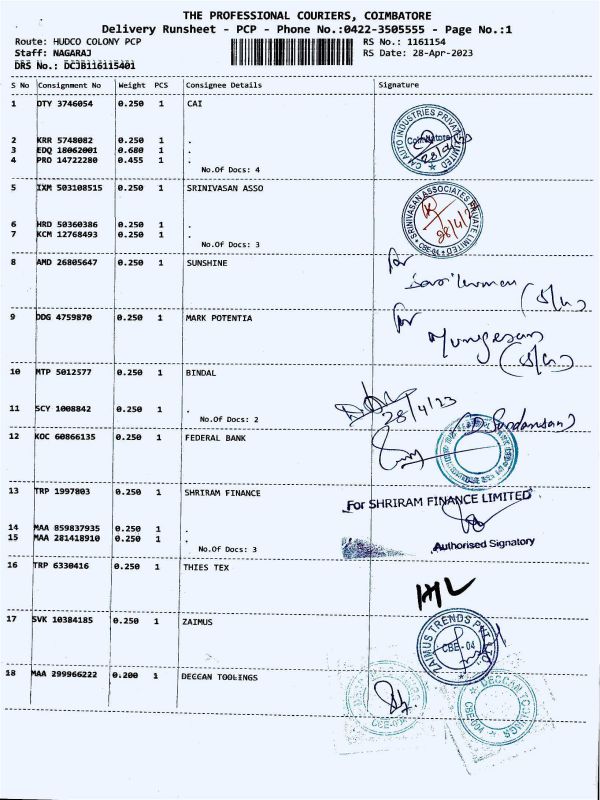 THE PROFESSIONAL COURIERS, COIMBATORE
Delivery Runsheet - PCP - Phone No.:0422-3505555 - Page No.:1
Route: HUDCO COLONY PCP RS No.: 1161154
Staff: NAGARAJ RS Date: 28-Apr-2023
DRS No.: DCJB116115401
S No Consignment No Weight PCS Consignee Details Signature
1 DTY 3746054 0.250 1 CAI
CAI AUTO INDUSTRIES PRIVATE LIMITED
Coimbatore
2 KRR 5748082 0.250 1 .
3 EDQ 18062001 0.680 1 .
4 PRO 14722280 0.455 1 .
No.Of Docs: 4
5 IXM 503108515 0.250 1 SRINIVASAN ASSO
SRINIVASAN ASSOCIATES PRIVATE LIMITED
CBE-04
28/4/23
6 HRD 50360386 0.250 1 .
7 KCM 12768493 0.250 1 .
No.Of Docs: 3
8 AMD 26805647 0.250 1 SUNSHINE
for
(S/G)
9 DDG 4759870 0.250 1 MARK POTENTIA
for
Murugesan
(S/G)
10 MTP 5012577 0.250 1 BINDAL
28/4/23
11 SCY 1008842 0.250 1 .
No.Of Docs: 2
12 KOC 60866135 0.250 1 FEDERAL BANK
13 TRP 1997803 0.250 1 SHRIRAM FINANCE
For SHRIRAM FINANCE LIMITED
14 MAA 859837935 0.250 1 .
15 MAA 281418910 0.250 1 .
No.Of Docs: 3
Authorised Signatory
16 TRP 6330416 0.250 1 THIES TEX
17 SVK 10384185 0.250 1 ZAIMUS
ZAIMUS TRENDS PVT LTD
CBE-04
18 MAA 299966222 0.200 1 DECCAN TOOLINGS
DECCAN TOOLINGS
CBE-004